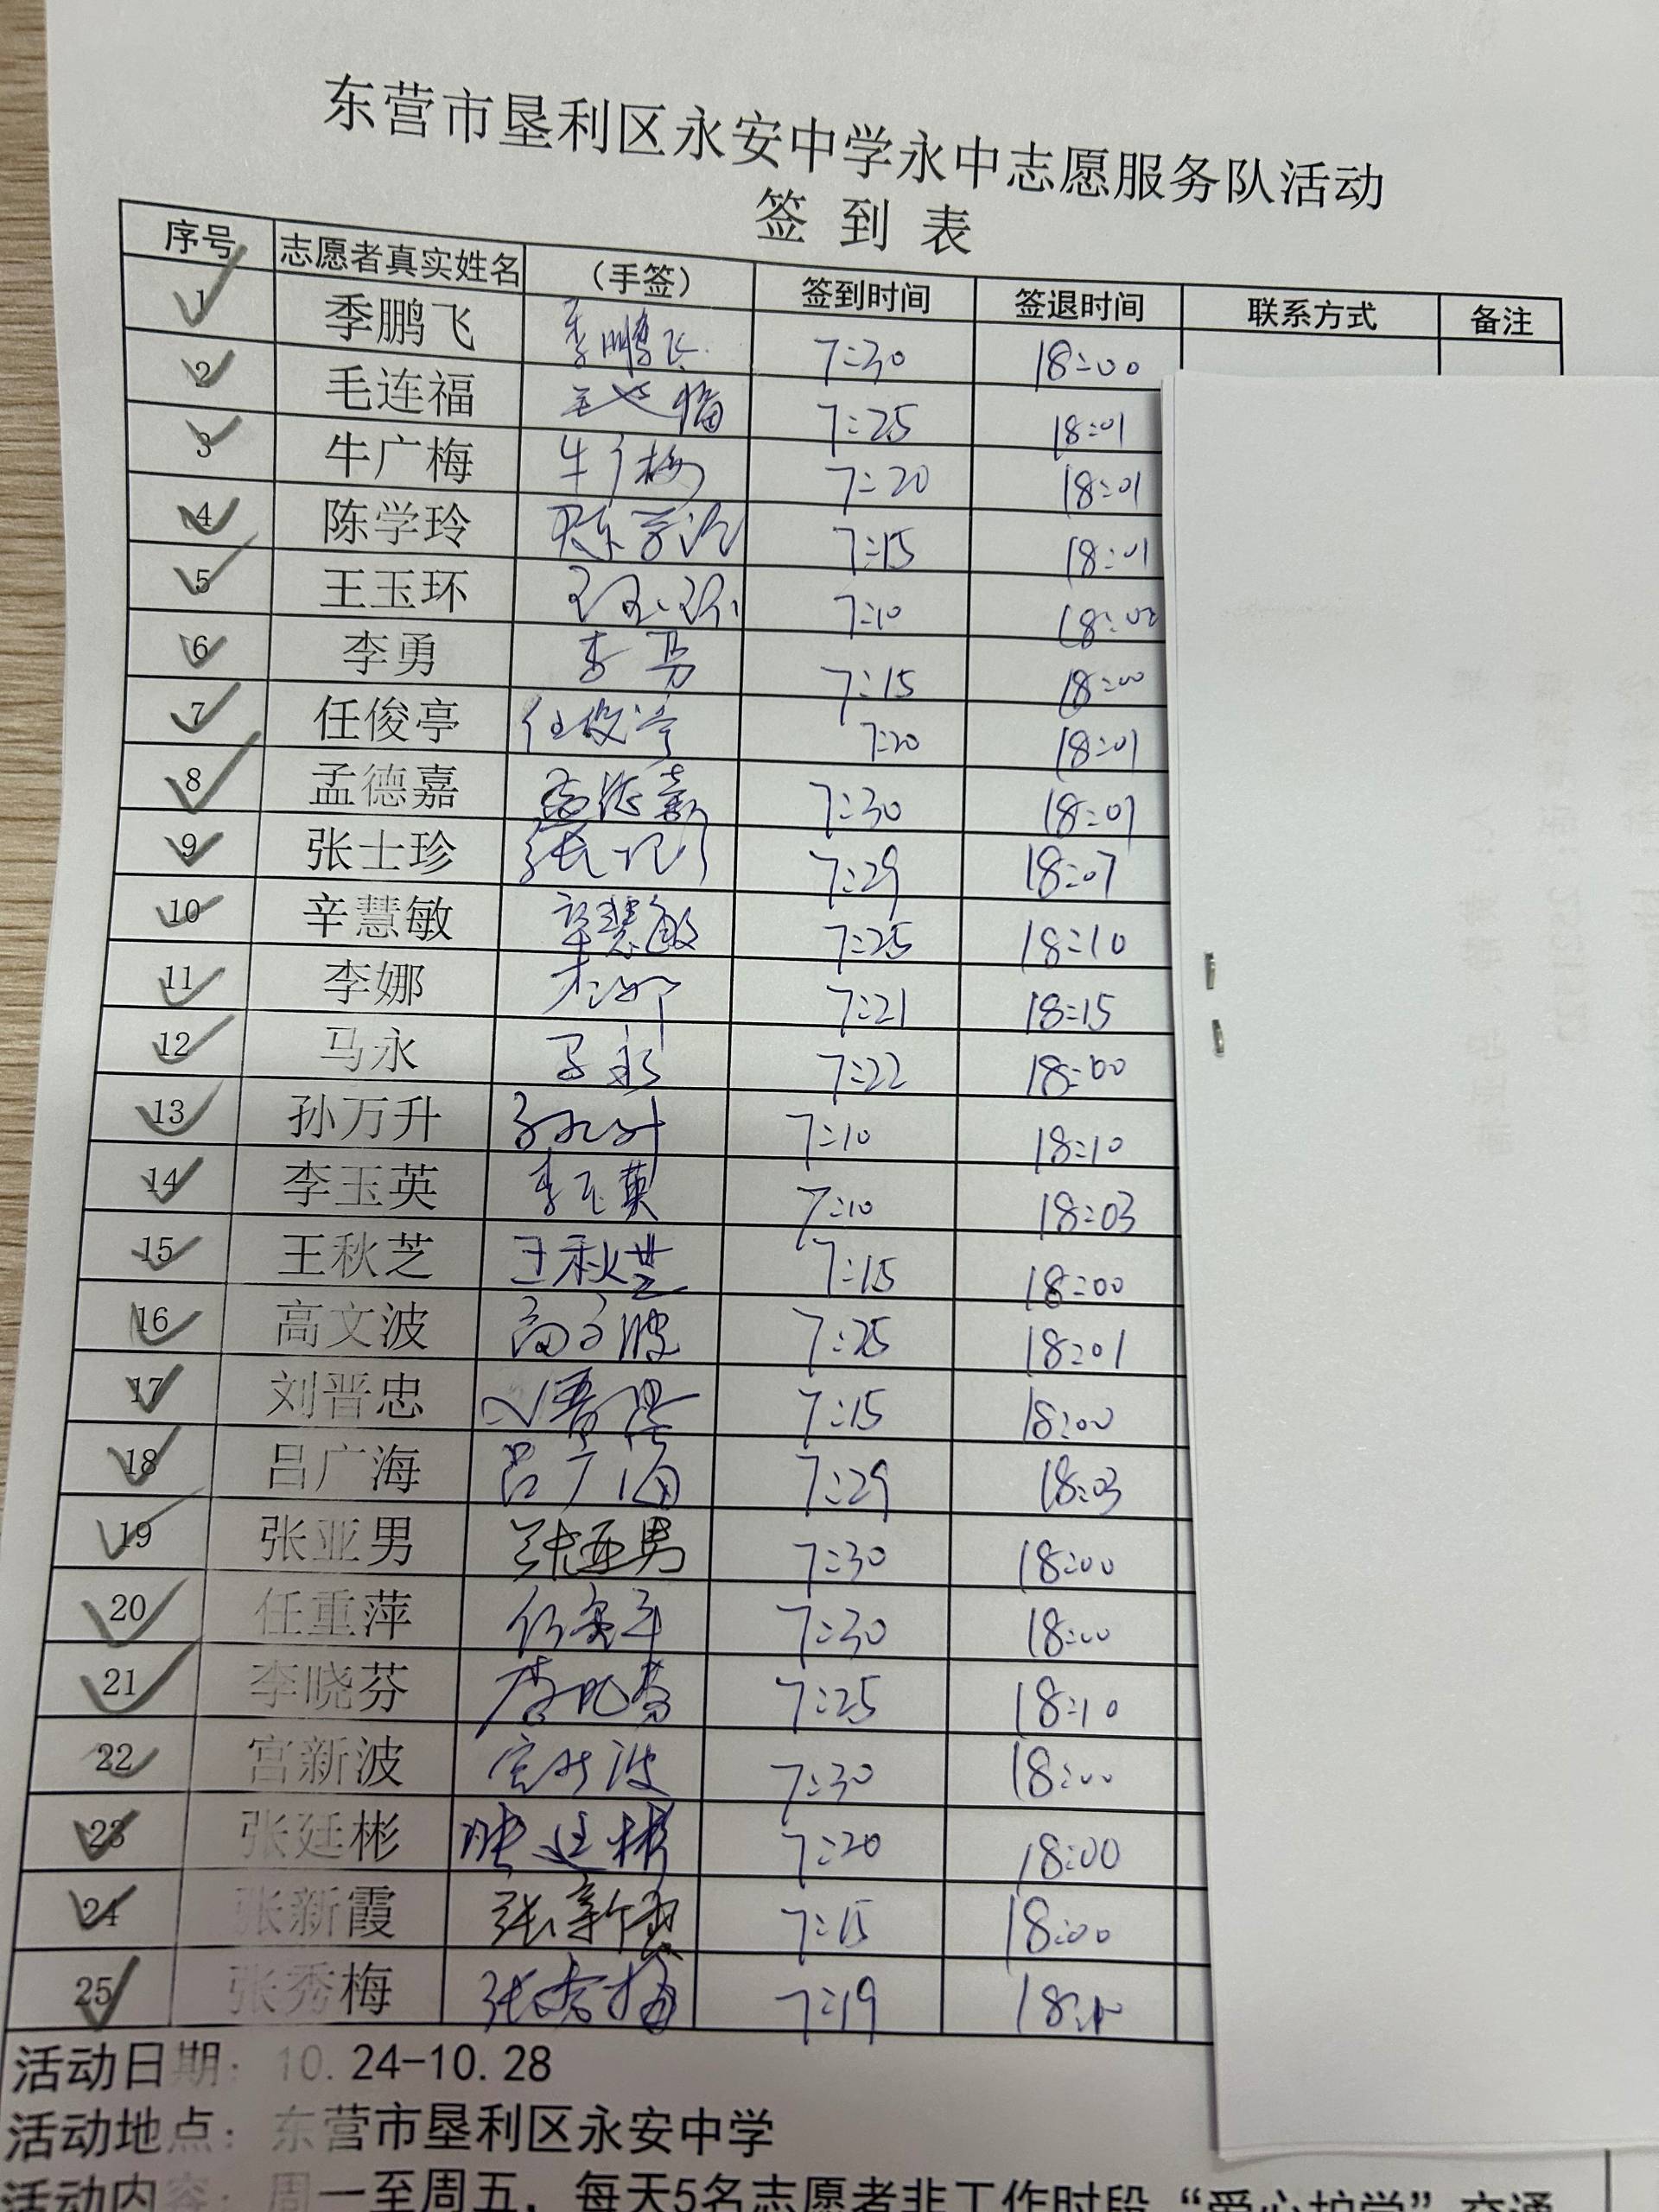 东营市垦利区永安中学永中志愿服务队活动
签 到 表
序号 志愿者真实姓名 （手签） 签到时间 签退时间 联系方式 备注
1 季鹏飞 季鹏飞 7:30 18:00
2 毛连福 毛连福 7:25 18:01
3 牛广梅 牛广梅 7:20 18:01
4 陈学玲 陈学玲 7:15 18:01
5 王玉环 王玉环 7:10 18:00
6 李勇 李勇 7:15 18:00
7 任俊亭 任俊亭 7:20 18:01
8 孟德嘉 孟德嘉 7:30 18:01
9 张士珍 张士珍 7:29 18:07
10 辛慧敏 辛慧敏 7:25 18:10
11 李娜 李娜 7:21 18:15
12 马永 马永 7:22 18:00
13 孙万升 孙万升 7:10 18:10
14 李玉英 李玉英 7:10 18:03
15 王秋芝 王秋芝 7:15 18:00
16 高文波 高文波 7:25 18:01
17 刘晋忠 刘晋忠 7:15 18:00
18 吕广海 吕广海 7:29 18:03
19 张亚男 张亚男 7:30 18:00
20 任重萍 任重萍 7:30 18:00
21 李晓芬 李晓芬 7:25 18:10
22 宫新波 宫新波 7:30 18:00
23 张廷彬 张廷彬 7:20 18:00
24 张新霞 张新霞 7:15 18:00
25 张秀梅 张秀梅 7:19
活动日期：10.24-10.28
活动地点：东营市垦利区永安中学
活动内容：周一至周五，每天5名志愿者非工作时段“爱心护学”交通